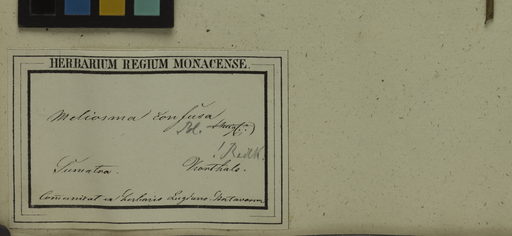 HERBARIUM REGIUM MONACENSE.
Meliosma confusa
Bl.
Sumatra. Korthals.
Communicat ex herbario Lugduno Batavorum